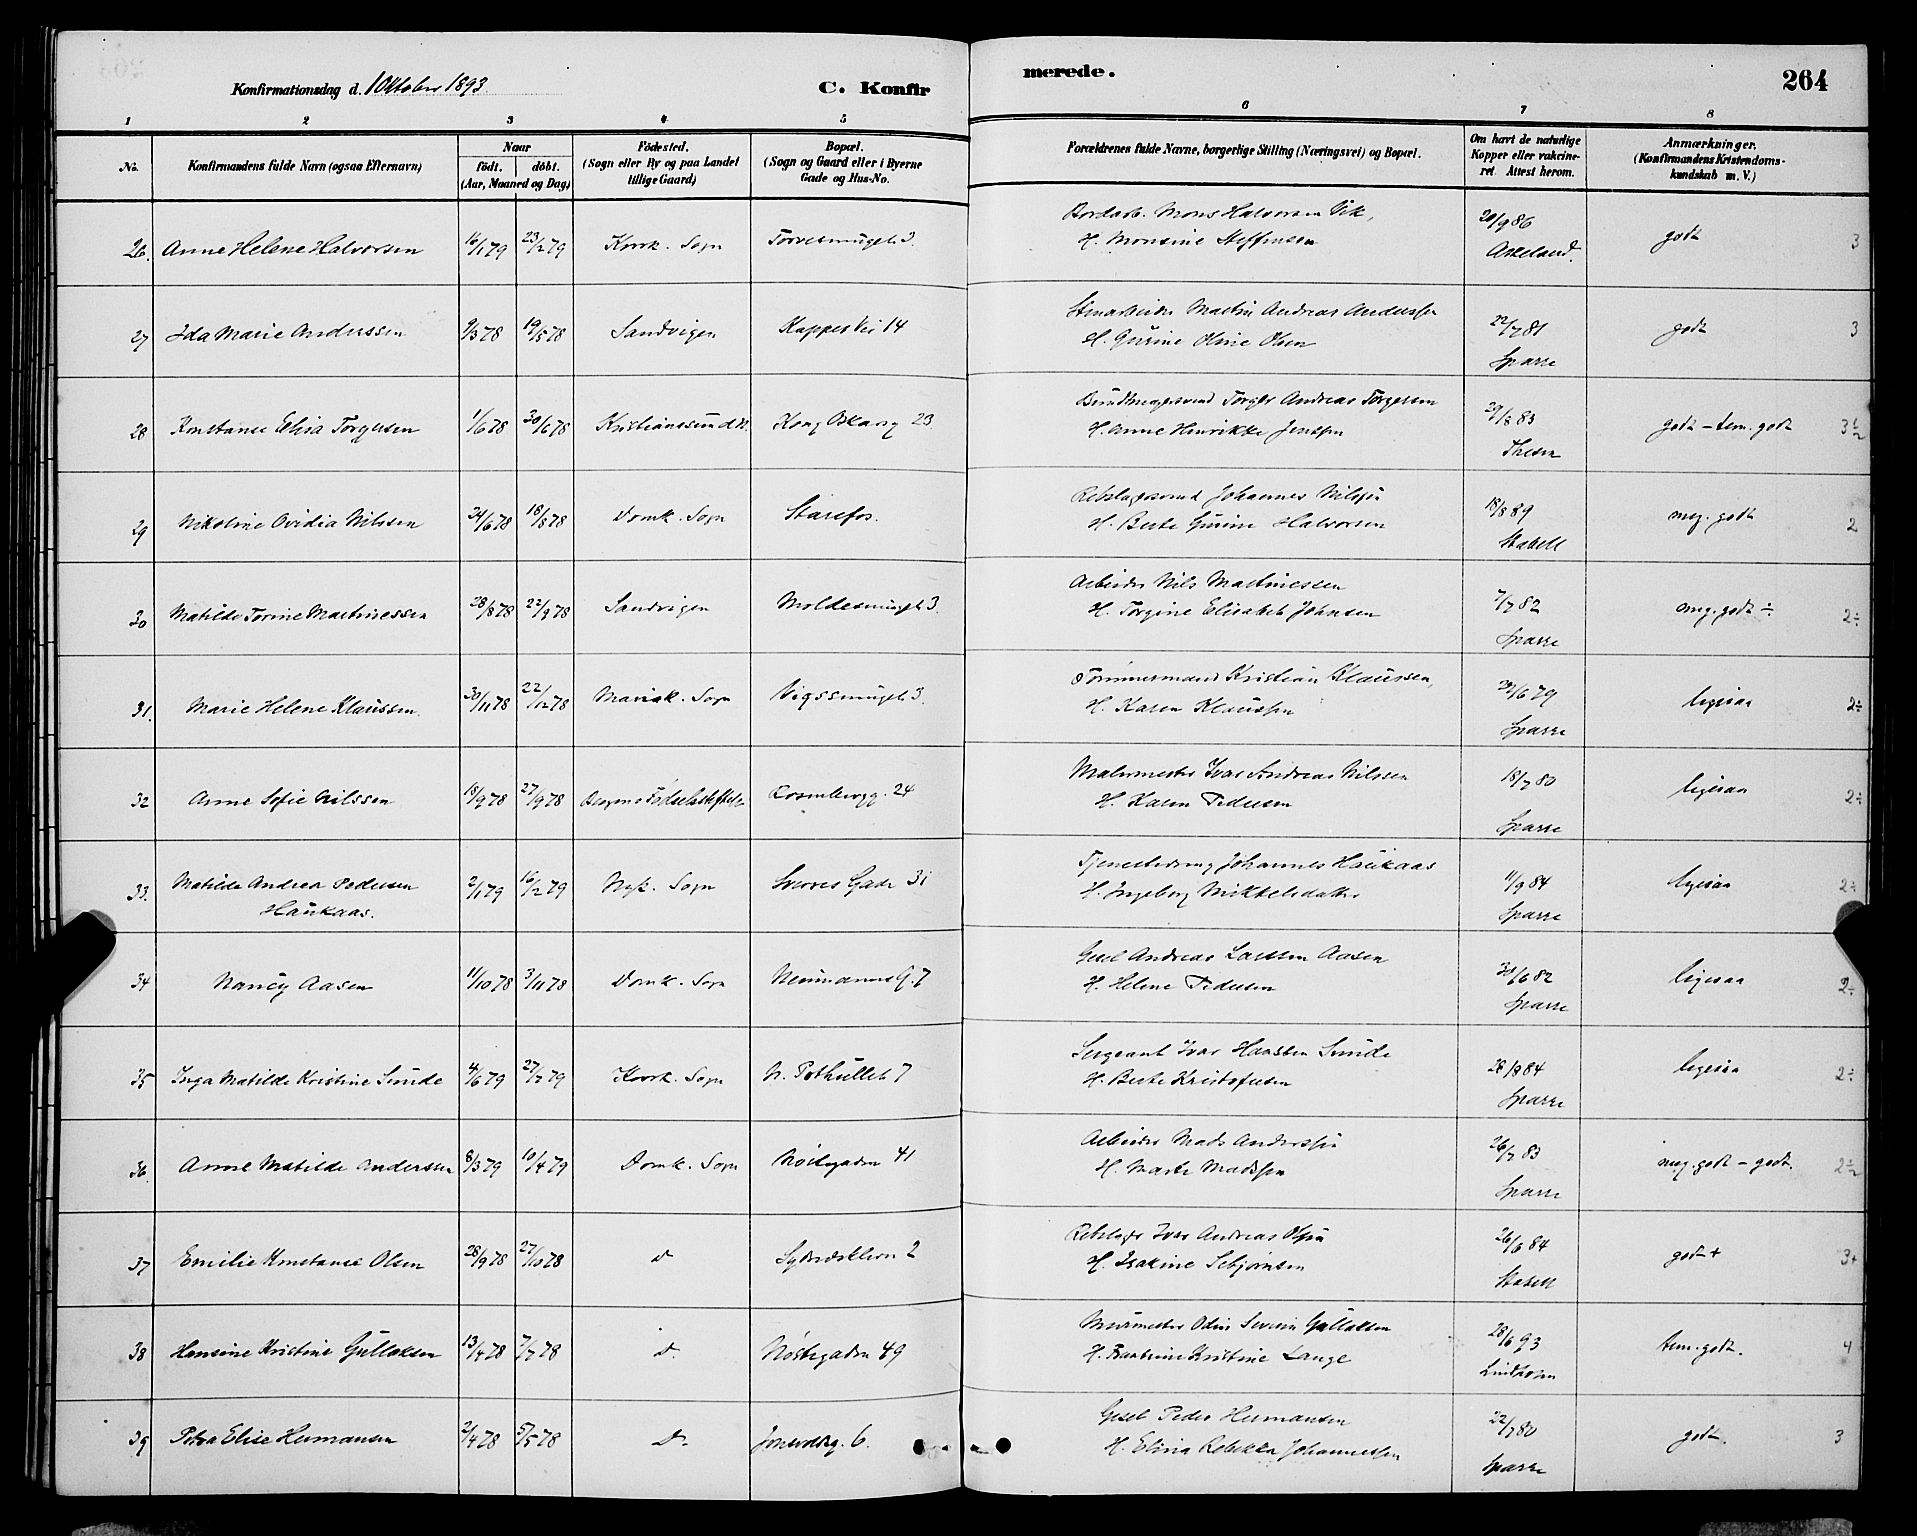 Konfirmationsdag d. 1 Oktober 1893
C. Konfir
merede.
264
1 2 3 4 5 6 7 8
No. Konfirmandens fulde Navn (ogsaa Efternavn) Naar födt. döbt. (Aar, Maaned og Dag) Födested. (Sogn eller By og paa Landet tillige Gaard) Bopæl. (Sogn og Gaard eller i Byerne Gade og Hus-No. Forældrenes fulde Navne, borgerlige Stilling (Næringsvei) og Bopæl. Om havt de naturlige Kopper eller vakcineret. Attest herom. Anmærkninger. (Konfirmandens Kristendomskundskab m. V.)
26. Anne Helene Halvorsen 16/1 79 23/2 79 Korsk. Sogn Torvesmuget 3. Bordarb. Mons Halvorsen Vik, 20/9 86 godt 3
H. Monsine Steffensen Askeland.
27 Ida Marie Anderssen 9/3 78 19/5 78 Sandvigen Kappes Vei 14 Stenarbeider Martin Andreas Anderssen 22/7 81 godt 3
H. Gurine Oline Olsen Sparre
28 Konstanse Elisa Torgersen 1/6 78 30/6 78 Kristianssund N. Kong Oskarsg 23 Bundtmagersvend Torger Andreas Torgersen 29/8 83 godt - tem. godt 3½
H. Anne Henrikke Jenssen Thesen
29 Nikoline Ovidia Nilssen 24/6 78 18/8 78 Domk. Sogn Starefos. Rebslagersvend Johannes Nilssen 18/8 89 meg. godt 2
H. Berte Gurine Halvorsen Stabell
30 Matilde Torine Martinessen 28/8 78 22/9 78 Sandvigen Moldesmuget 3. Arbeider Nils Martinessen 7/7 82 meg. godt ÷ 2÷
H. Torgine Elisabeth Johnsen Sparre
31. Marie Helene Klaussen. 30/11 78 22/12 78 Mariak. Sogn Vigssmuget 3. Tømmermand Kristian Klaussen, 29/6 79 ligesaa 2÷
H. Karen Klaussen Sparre
32 Anne Sofie Nilssen 18/9 78 27/9 78 Bergens Fødselsstiftelse Rosenbergg. 24 Malermester Ivar Andreas Nilssen 18/7 80 ligesaa 2÷
H. Karen Pedersen Sparre
33. Matilde Andrea Pedersen 2/1 79 16/2 79 Nyk. Sogn Sverres Gade 31 Tjenestedreng Johannes Haukaas 11/9 84 ligesaa 2÷
Haukaas. H. Ingeborg Mikkelsdatter Sparre
34 Nancy Aasen 11/10 78 3/11 78 Domk. Sogn Neumanns G. 7 Gesel Andreas Larssen Aasen 30/6 82 ligesaa 2÷
H. Helene Pedersen Sparre
35 Inga Matilde Kristine Sunde 4/6 79 27/7 79 Korsk. Sogn N. Fothullet 7 Sergeant Ivar Hanssen Sunde 28/8 84 ligesaa 2÷
H. Berte Kristofersen Sparre
36. Anne Matilde Anderssen 8/3 79 10/4 79 Domk. Sogn Nøstegaden 41 Arbeider Mads Anderssen 26/7 83 meg. godt - godt. 2½
H. Marte Madssen Sparre
37 Emilie Konstanse Olsen 28/9 78 27/10 78 do Sydneskleven 2 Rebslager Ivar Andreas Olsen 26/6 84 godt + 3+
H. Isakine Sebjørnsen Stabell
38 Hansine Kristine Gullaksen 13/4 78 7/7 78 do. Nøstegaden 49 Murmester Odin Severin Gullaksen 28/6 93 tem. godt. 4
H. Kristine Lange Lindholm
39 Petra Elise Hermansen 2/4 78 5/5 78 do. Jonsvoldsg. 6. Gesel Peder Hermansen 22/7 80 godt. 3
H. Elina Rebekka Johannessen Sparre